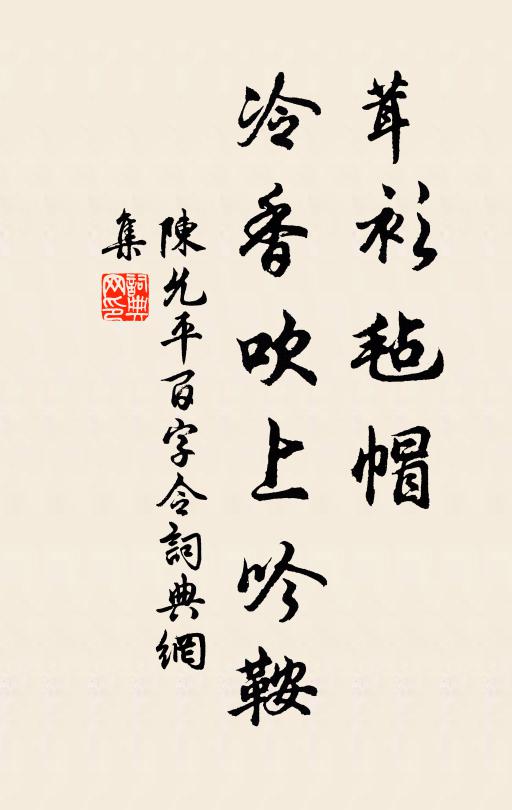 茸衫毡帽
冷香吹上吟鞍
陳允平百字令詞典網
集
詞典
网印